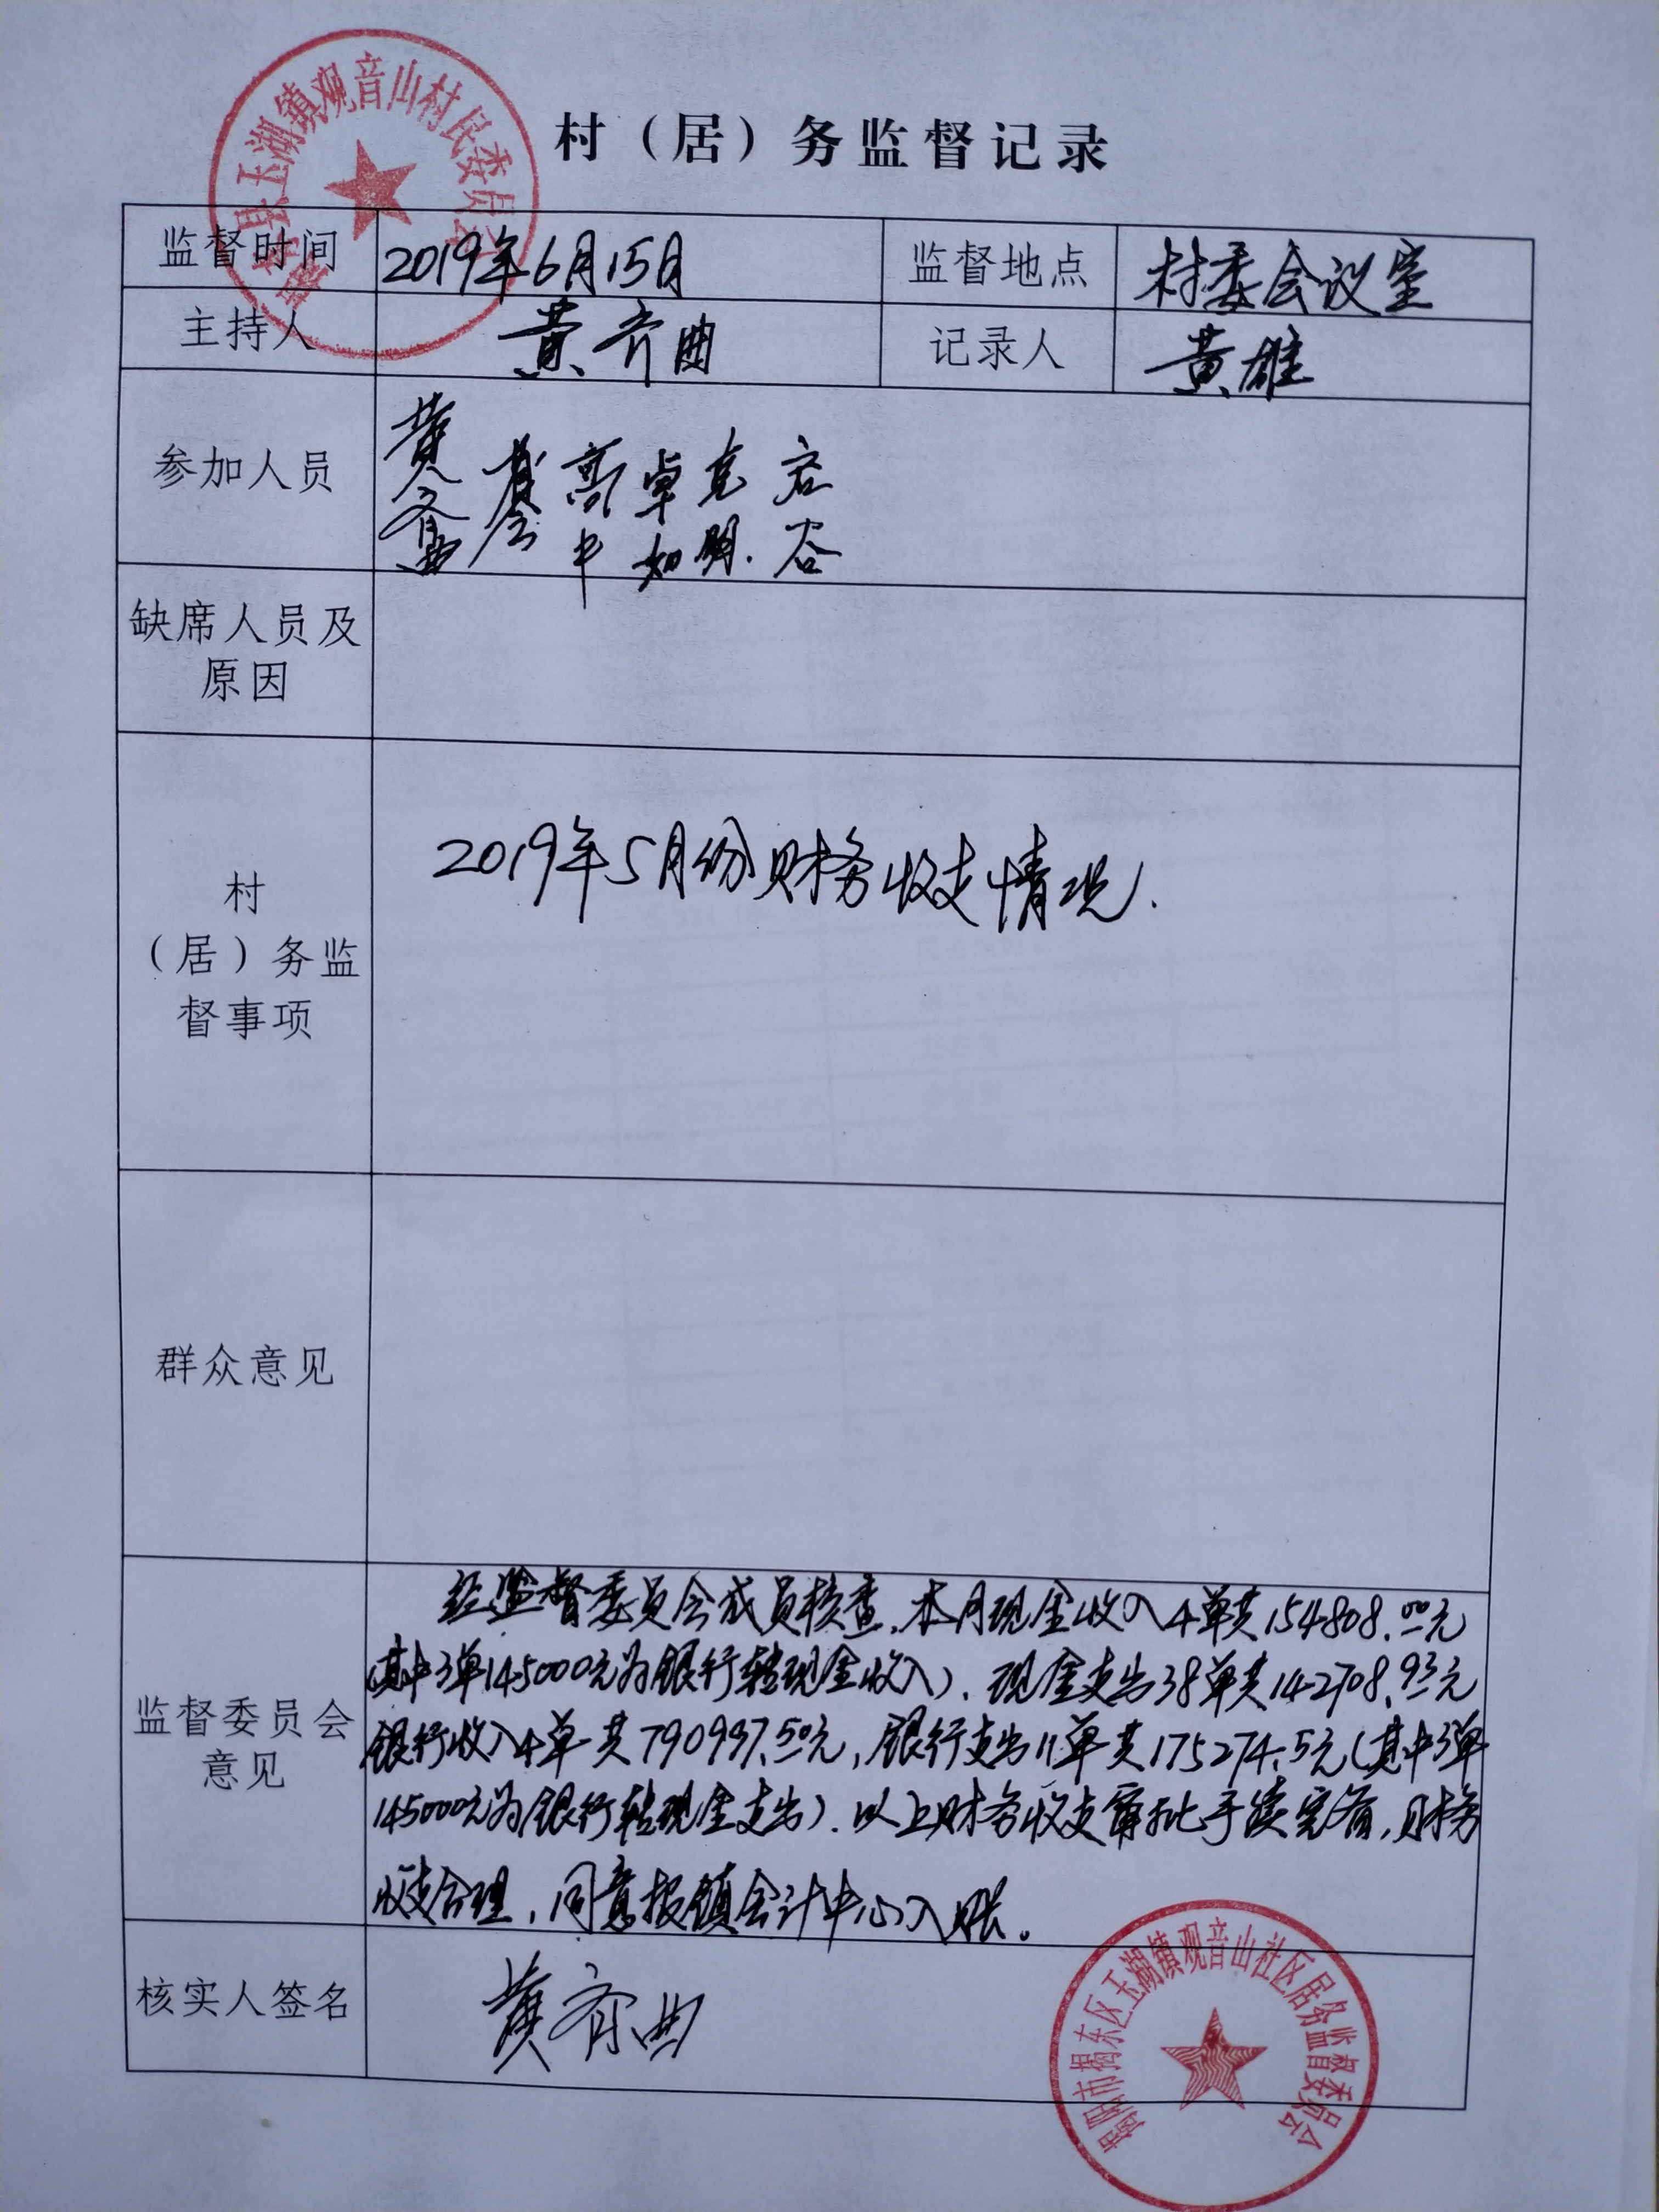 村（居）务监督记录
监督时间 2019年6月15日 监督地点 村委会议室
主持人 黄齐曲 记录人 黄雄
参加人员 黄齐曲
缺席人员及
原因
村
（居）务监
督事项
2019年5月份财务收支情况.
群众意见
监督委员会
意见
经监督委员会成员核查,本月现金收入4单共154808.00元
(其中3单145000元为银行转现金收入). 现金支出38单共142708.93元
银行收入4单共790997.50元, 银行支出11单共175274.5元(其中3单
145000元为银行转现金支出). 以上财务收支审批手续完备, 财务
收支合理, 同意报镇会计中心入账。
核实人签名 黄齐曲
玉湖镇观音山村民委员会
揭阳市揭东区玉湖镇观音山社区居务监督委员会